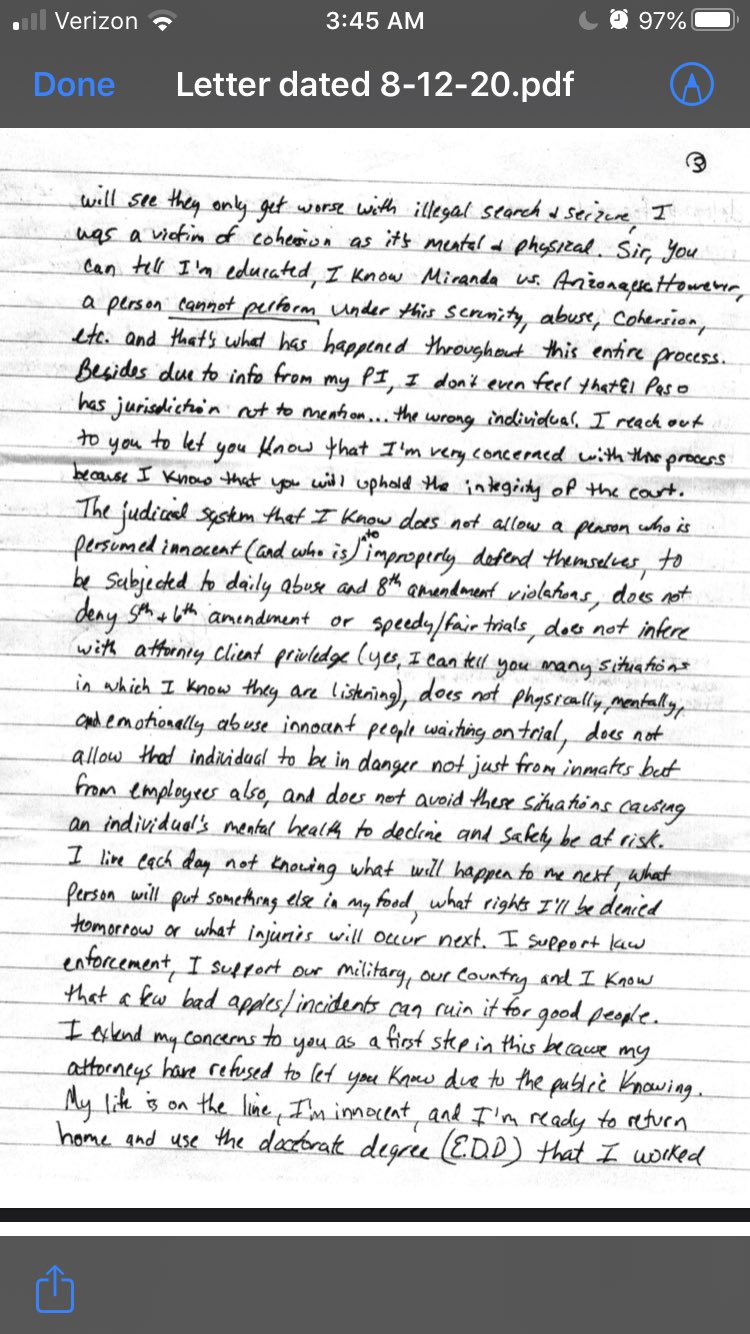 Verizon 3:45 AM 97%
Done Letter dated 8-12-20.pdf
③
will see they only get worse with illegal search & seizure, I
was a victim of cohersion as it's mental & physical. Sir, you
can tell I'm educated, I know Miranda vs. Arizona, etc. However,
a person cannot perform under this scrunity, abuse, cohersion,
etc. and that's what has happened throughout this entire process.
Besides due to info from my PI, I don't even feel that El Paso
has jurisdiction not to mention... the wrong individual. I reach out
to you to let you know that I'm very concerned with this process
because I know that you will uphold the integrity of the court.
The judicial system that I know does not allow a person who is
persumed innocent (and who is) to improperly defend themselves, to
be subjected to daily abuse and 8th amendment violations, does not
deny 5th & 6th amendment or speedy/fair trials, does not infere
with attorney client privledge (yes, I can tell you many situations
in which I know they are listening), does not physically, mentally,
and emotionally abuse innocent people waiting on trial, does not
allow that individual to be in danger not just from inmates but
from employees also, and does not avoid these situations causing
an individual's mental health to decline and safety be at risk.
I live each day not knowing what will happen to me next, what
person will put something else in my food, what rights I'll be denied
tomorrow or what injuries will occur next. I support law
enforcement, I support our military, our country and I know
that a few bad apples/incidents can ruin it for good people.
I extend my concerns to you as a first step in this because my
attorneys have refused to let you know due to the public knowing.
My life is on the line, I'm innocent, and I'm ready to return
home and use the doctorate degree (E.D.D) that I worked